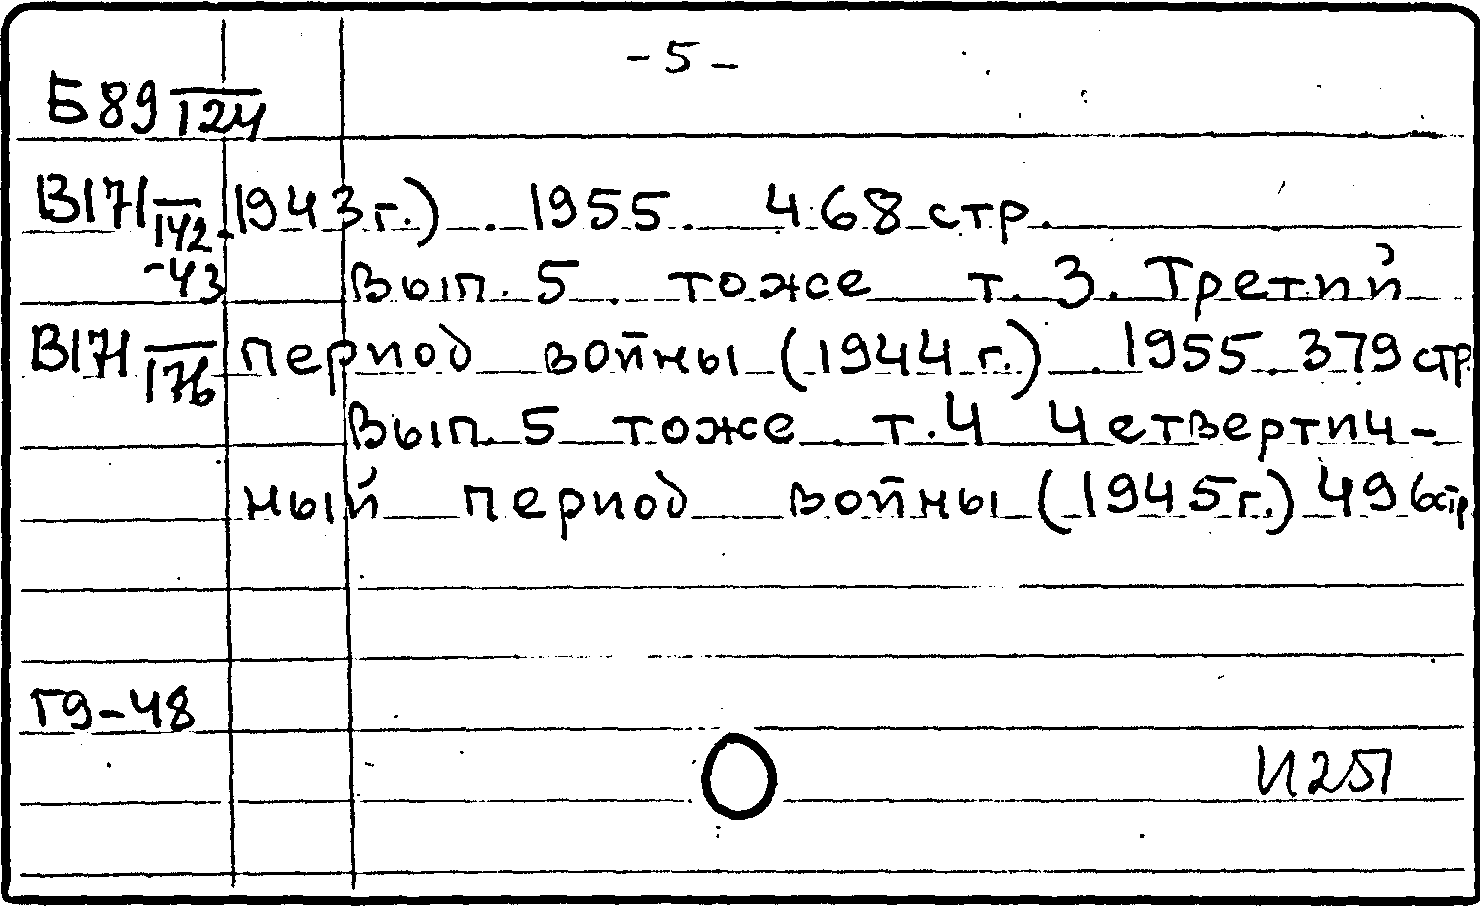 - 5 -
Б 89 124
В171 142 1943 г.) . 1955. 468 стр.
-43 Вып. 5. тоже т. 3. Третий
В171 176 период войны (1944 г.) . 1955. 379 стр
Вып. 5 тоже. т. 4 Четвертич-
ный период войны (1945г.) 496 стр
Г9-48
И251